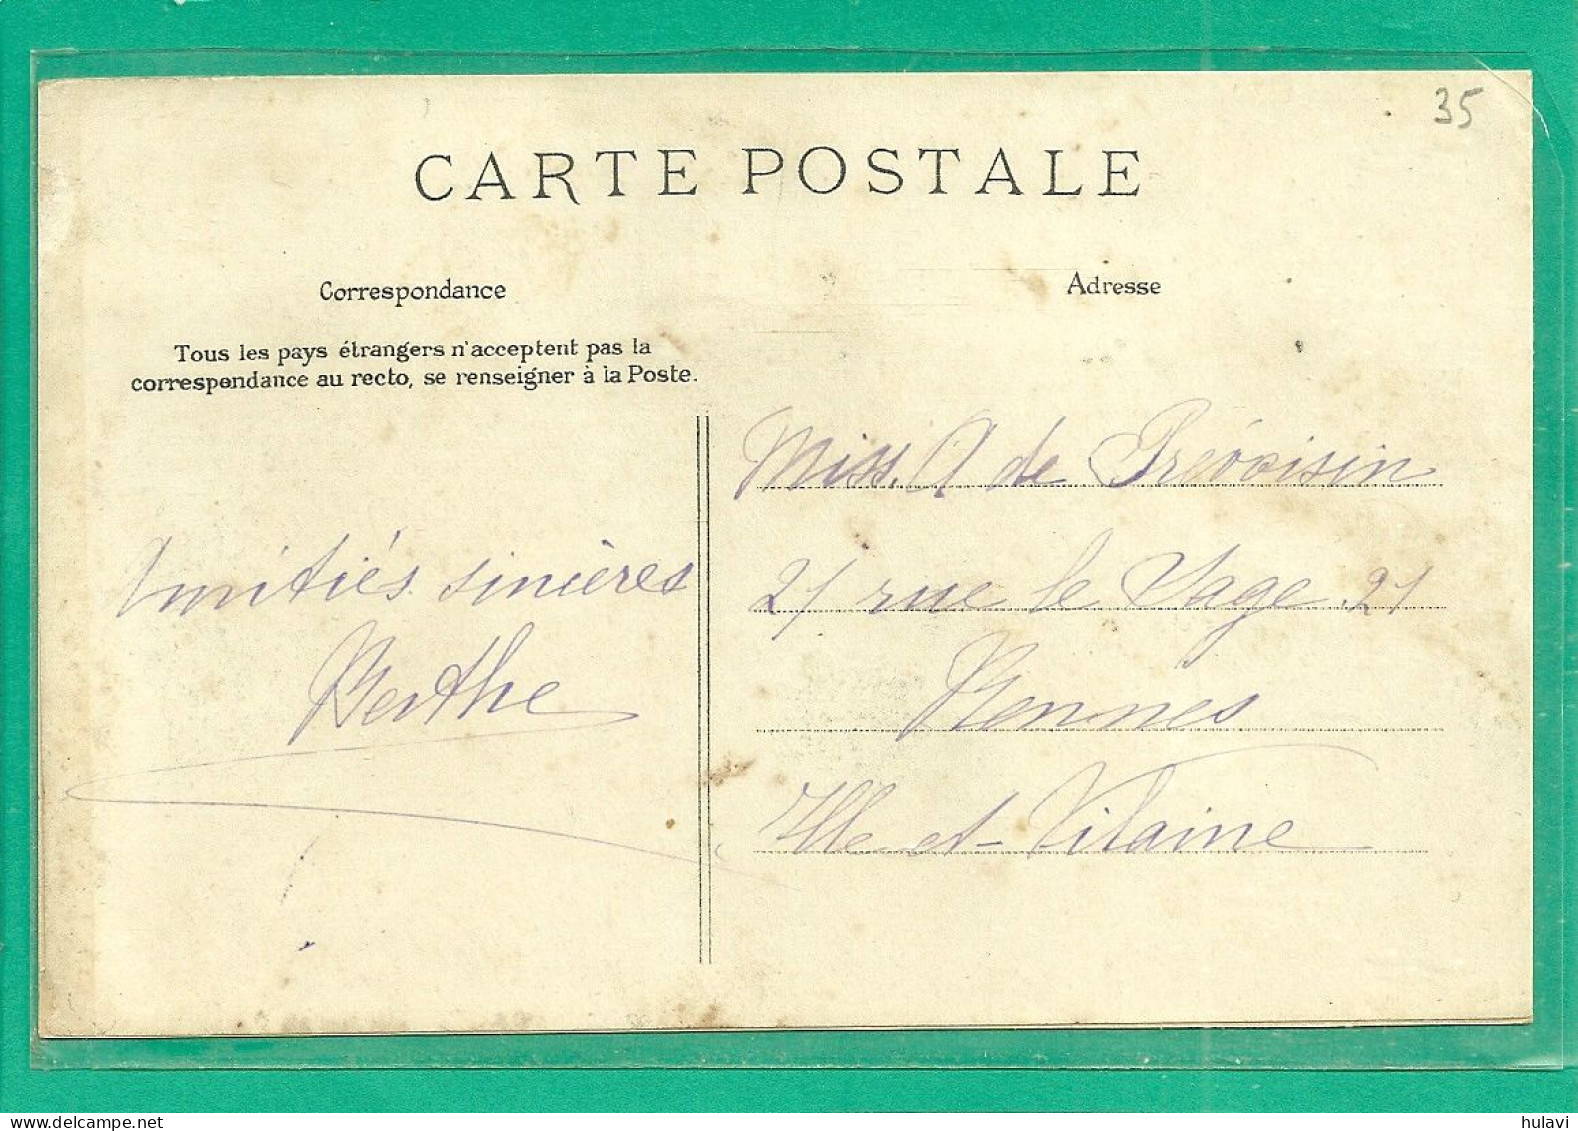 35
CARTE POSTALE
Correspondance
Adresse
Tous les pays étrangers n'acceptent pas la
correspondance au recto, se renseigner à la Poste.
Amitiés sincères
Berthe
Miss. A de Prévoisin
21 rue le Sage. 21
Rennes
Ille-et-Vilaine
delcampe.net
hulavi